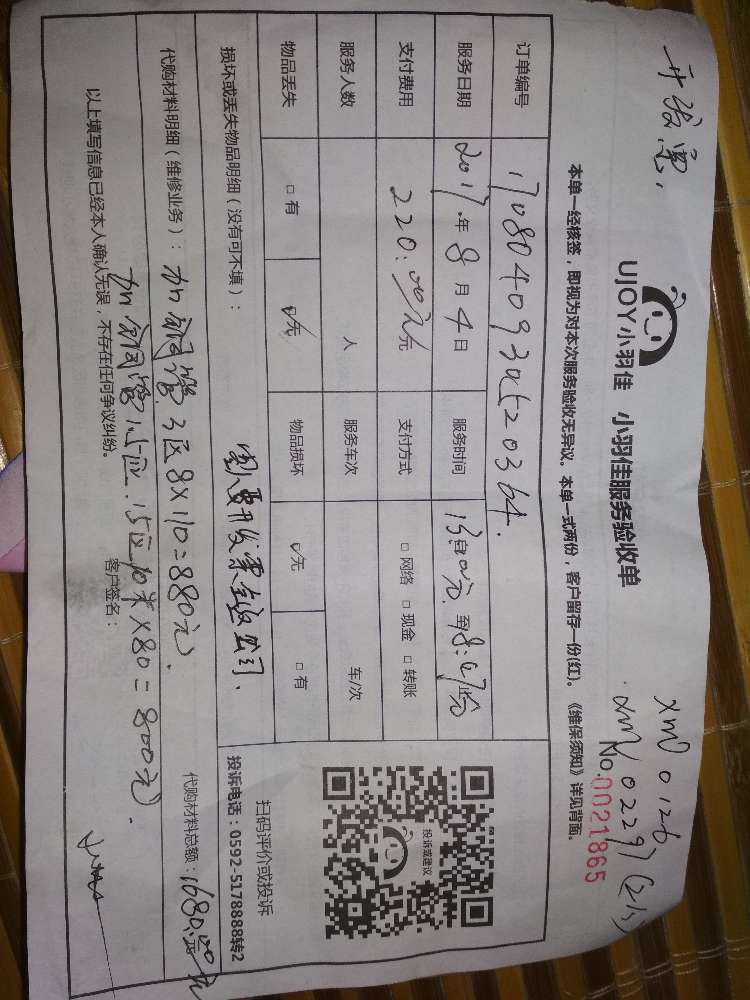 开发票,
XM 0126
XM 0229 (2小)
UJOY小羽佳 小羽佳服务验收单
No.0021865
本单一经核签,即视为对本次服务验收无异议。本单一式两份,客户留存一份(红)。《维保须知》详见背面。
订单编号 170804093045520364.
服务日期 2017年8月4日 服务时间
支付费用 220.00元 支付方式 □ 网络 □ 现金 □ 转账
服务人数 人 服务车次 车/次
物品丢失 □ 有 ☑无 物品损坏 ☑无 □ 有
投诉或建议
扫码评价或投诉
投诉电话:0592-5178888转2
损坏或丢失物品明细(没有可不填):
要开发票 公司.
代购材料明细(维修业务):加铜管3匹8×110=880元.
代购材料总额:1680.00元
加铜管 1.5匹10米×80=800元.
以上填写信息已经本人确认无误,不存在任何争议纠纷。
客户签名: